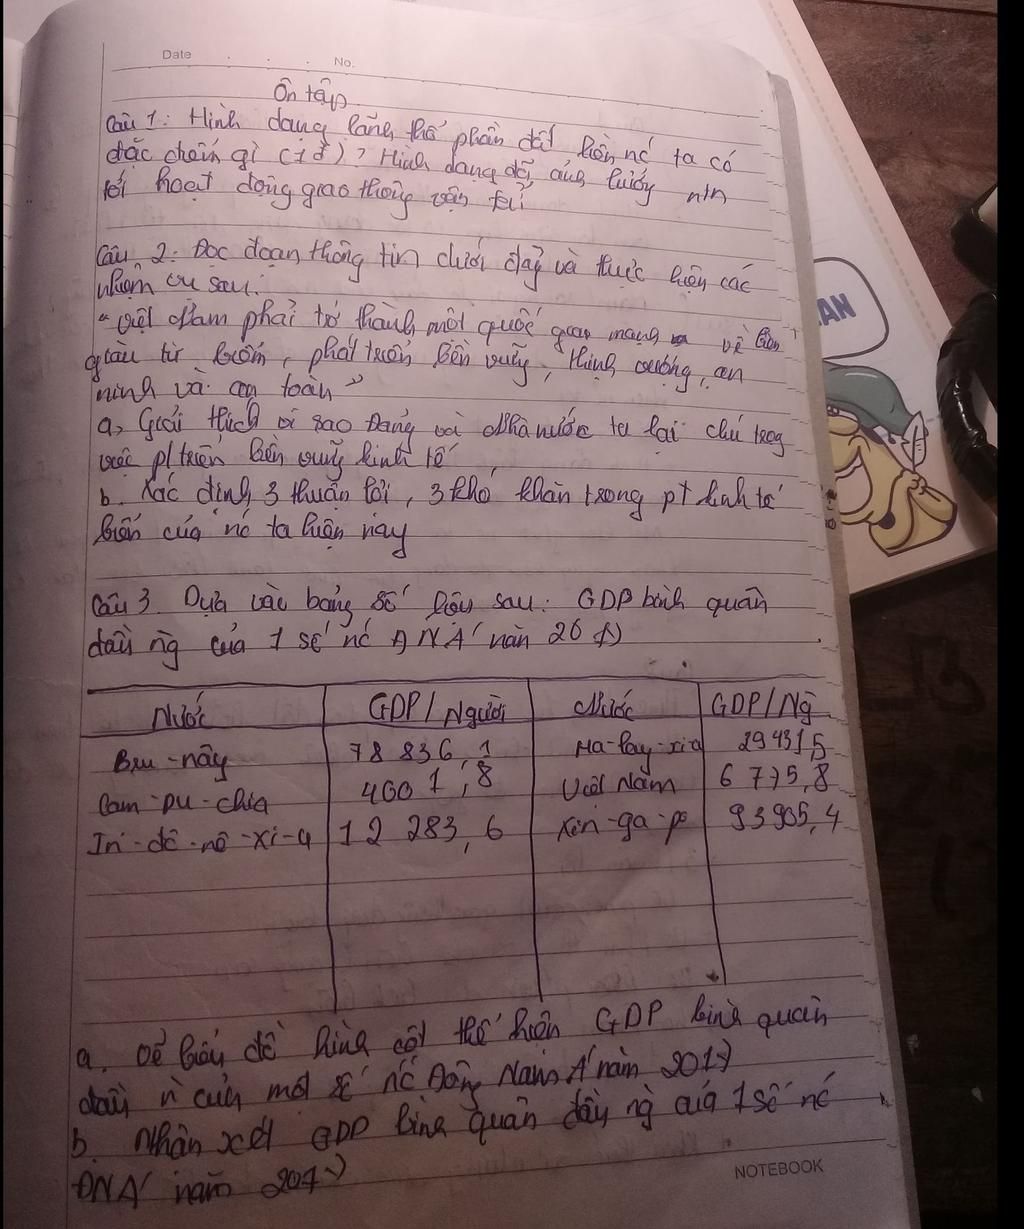 Date No.
Ôn tập
Câu 1: Hình dạng lãnh thổ phần đất liền nc ta có
đặc điểm gì (1đ)? Hình dạng đó ảnh hưởng ntn
tới hoạt động giao thông vận tải
Câu 2: Đọc đoạn thông tin dưới đây và thực hiện các
nhiệm vụ sau:
"Việt Nam phải trở thành một quốc gia mạnh về biển
giàu từ biển, phát triển bền vững, thịnh vượng, an
ninh và an toàn"
a, Giải thích vì sao Đảng và Nhà nước ta lại chú trọng
việc p/triển bền vững kinh tế
b. Xác định 3 thuận lợi, 3 khó khăn trong pt kinh tế
biển của nc ta hiện nay
AN
Câu 3. Dựa vào bảng số liệu sau: GDP bình quân
đầu ng của 1 số nc ĐNÁ năm
Nước GDP/Người Nước GDP/Ng
Bru-nây 78 836,1 Ma-lay-xia 29431,5
Cam-pu-chia 4001,8 Việt Nam 6 775,8
In-đô-nê-xi-a 12 283,6 Xin-ga-po 93905,4
a. Vẽ biểu đồ hình cột thể hiện GDP bình quân
đầu n của một số nc Đông Nam Á năm 2017
b. Nhận xét GDP bình quân đầu ng của 1 số nc
ĐNÁ năm 2017
NOTEBOOK